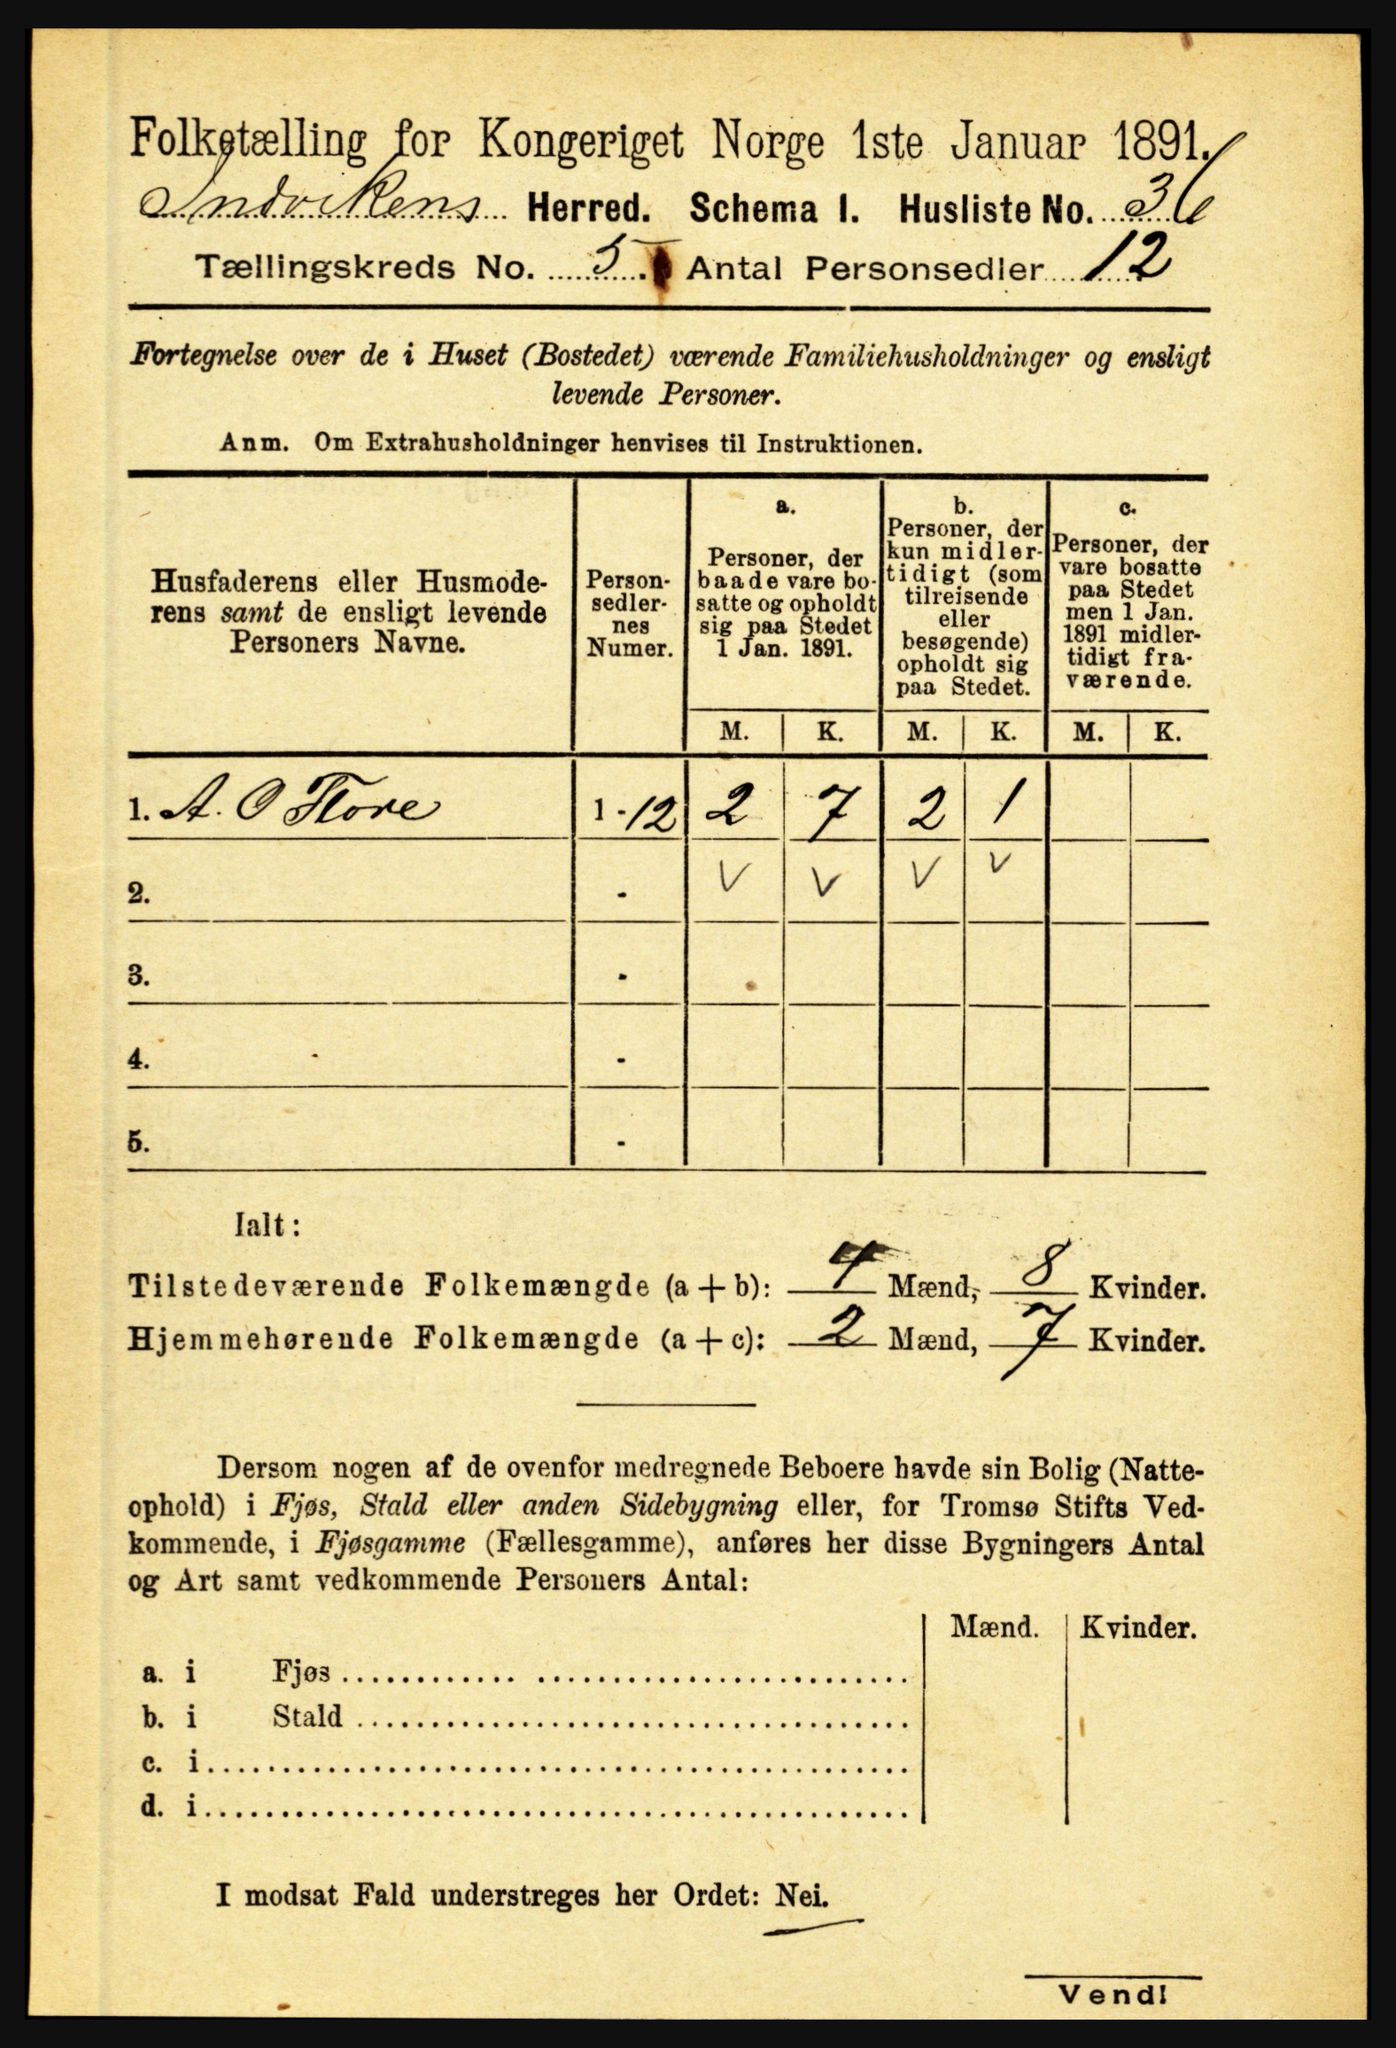 Folketælling for Kongeriget Norge 1ste Januar 1891.
Indvikens Herred. Schema I. Husliste No. 36
Tællingskreds No. 5. Antal Personsedler 12
Fortegnelse over de i Huset (Bostedet) værende Familiehusholdninger og ensligt
levende Personer.
Anm. Om Extrahusholdninger henvises til Instruktionen.
Husfaderens eller Husmode-
rens samt de ensligt levende
Personers Navne.
Person-
sedler-
nes
Numer.
a.
Personer, der
baade vare bo-
satte og opholdt
sig paa Stedet
1 Jan. 1891.
b.
Personer, der
kun midler-
tidigt (som
tilreisende
eller
besøgende)
opholdt sig
paa Stedet.
c.
Personer, der
vare bosatte
paa Stedet
men 1 Jan.
1891 midler-
tidigt fra-
værende.
M. K. M. K. M. K.
1. A. O Flore 1 - 12 2 7 2 1
2. - V V V V
3. -
4. -
5. -
Ialt:
Tilstedeværende Folkemængde (a + b): 4 Mænd, 8 Kvinder.
Hjemmehørende Folkemængde (a + c): 2 Mænd, 7 Kvinder.
Dersom nogen af de ovenfor medregnede Beboere havde sin Bolig (Natte-
ophold) i Fjøs, Stald eller anden Sidebygning eller, for Tromsø Stifts Ved-
kommende, i Fjøsgamme (Fællesgamme), anføres her disse Bygningers Antal
og Art samt vedkommende Personers Antal:
Mænd. Kvinder.
a. i Fjøs
b. i Stald
c. i
d. i
I modsat Fald understreges her Ordet: Nei.
Vend!